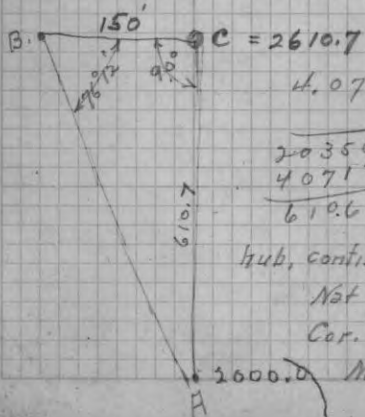 150'
B. C = 2610.7
76° 12' 90°
4.07
20350
4071
610.6
610.7
hub, conti
Nat
Cor.
2000.0
A